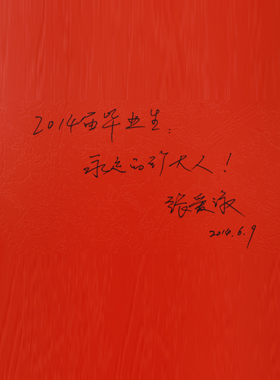 2014届毕业生：
永远的矿大人！
张爱淑
2014.6.9